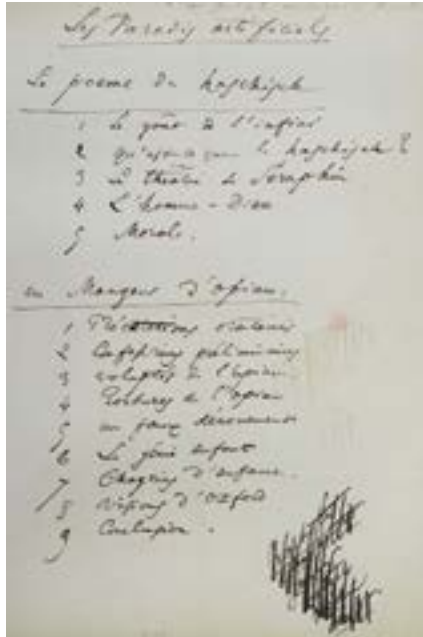 Les Paradis artificiels
Le poème du haschisch
1 Le goût de l'infini
2 Qu'est-ce que le haschisch ?
3 Le théâtre de Séraphin
4 L'homme-Dieu
5 Morale.
un Mangeur d'opium.
1 Précautions oratoires
2 Confessions préliminaires
3 voluptés de l'opium
4 Tortures de l'opium
5 un faux dénouement
6 Le génie enfant
7 Chagrins d'enfance.
8 visions d'Oxford
9 Conclusion.